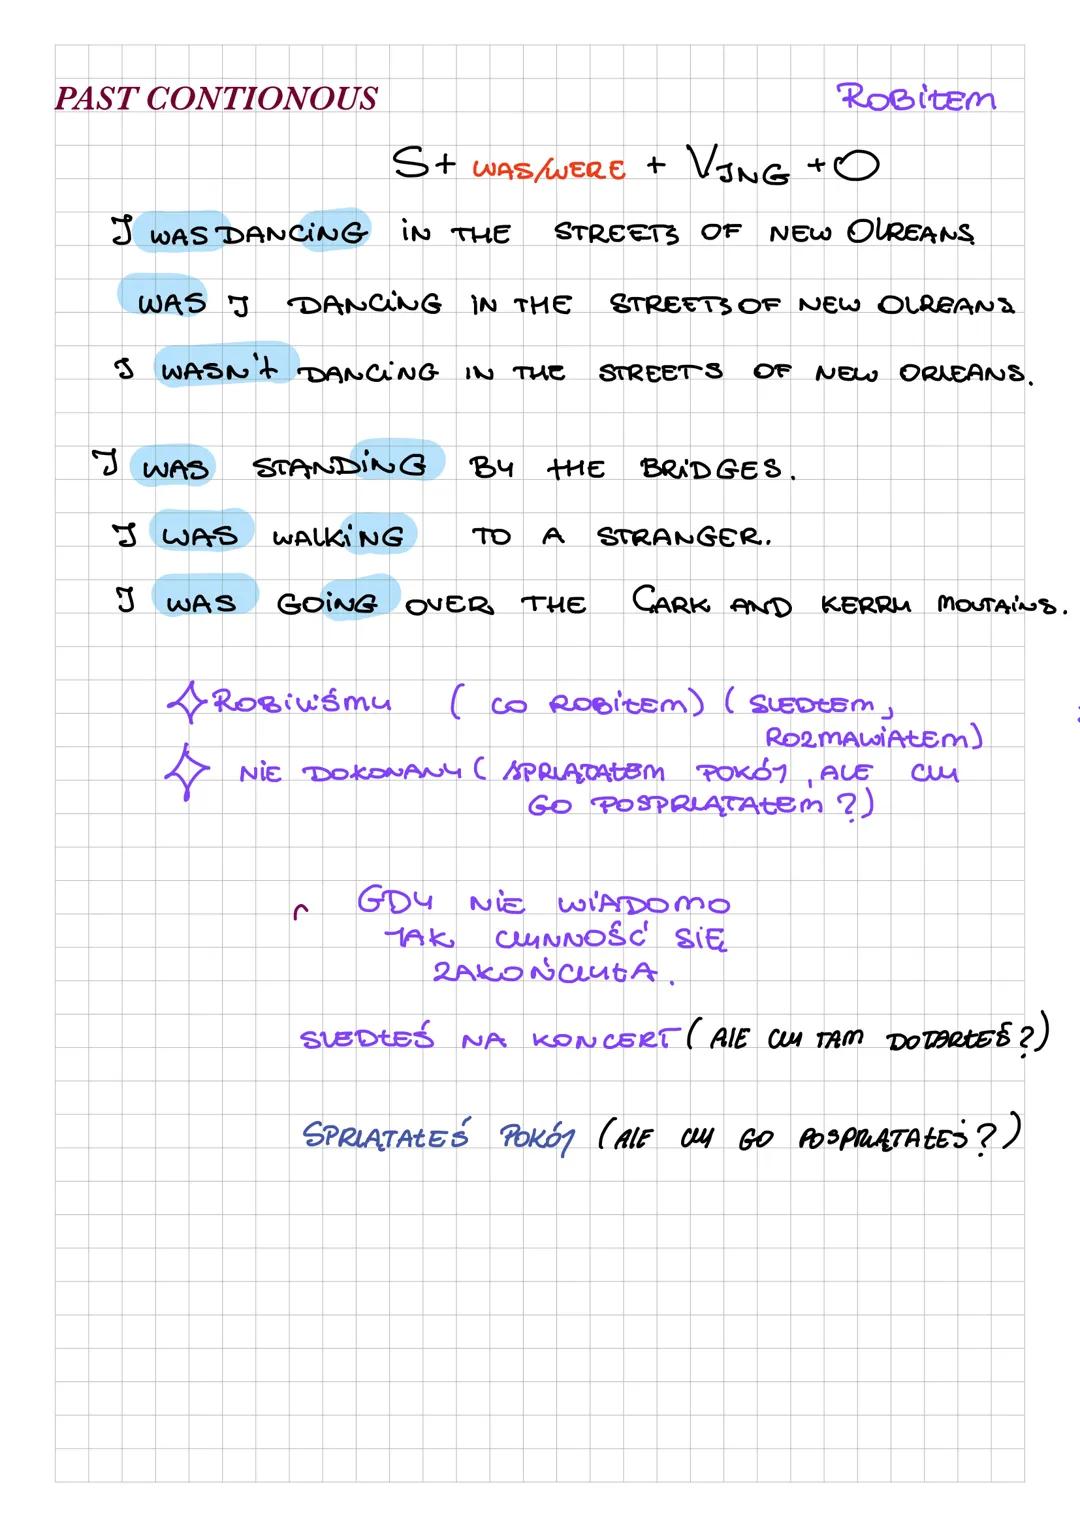 PAST CONTIONOUS
ROBiŁEM
S+ WAS/WERE + VING +O
I WAS DANCiNG iN THE STREETS OF NEW OLREANS
WAS I DANCiNG iN THE STREETS OF NEW OLREANS
I WASN't DANCiNG IN THE STREETS OF NEW ORLEANS.
I WAS STANDiNG BY tHE BRiDGES.
I WAS WALKiNG TO A STRANGER.
I WAS GOiNG OVER THE CARK AND KERRY MOUTAiNS.
ROBiLiŚMY ( CO ROBiŁEM) ( SZEDŁEM,
ROZMAWiAŁEM)
NiE DOKONANY ( SPRZĄTAŁEM POKÓJ, ALE CZY
GO POSPRZĄTAŁEM ?)
GDY NiE WiADOMO
JAK CZYNNOŚĆ SiĘ
ZAKOŃCZYŁA.
SZEDŁEŚ NA KONCERT ( ALE CZY TAM DOTARŁEŚ?)
SPRZĄTAŁEŚ POKÓJ (ALE CZY GO POSPRZĄTAŁEŚ?)